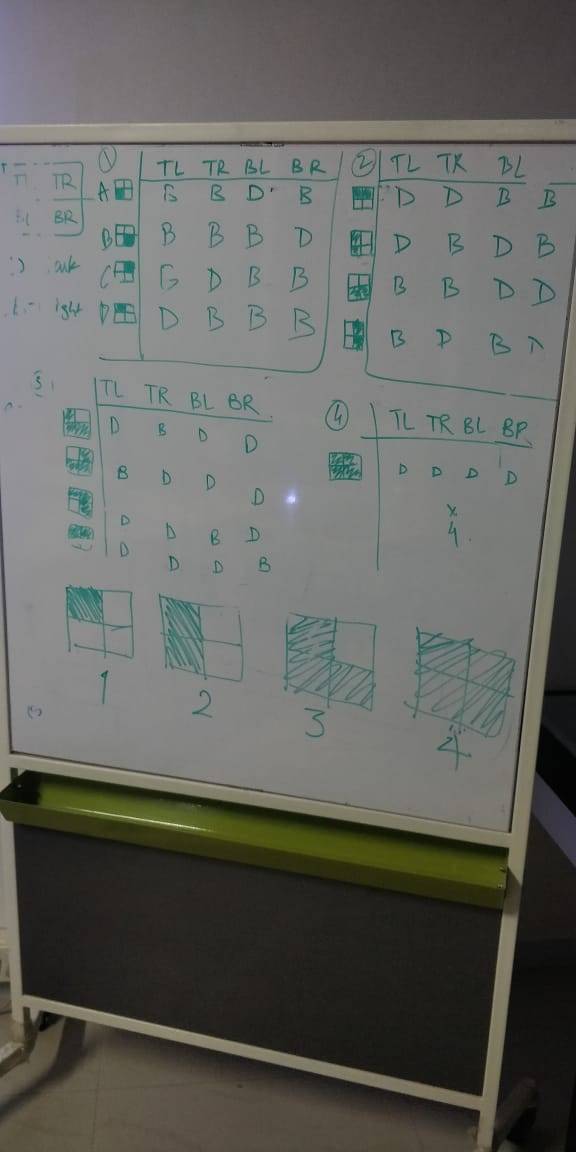 TL TR
BL BR
① TL TR BL BR
A B B D B
B B B B D
C B D B B
D D B B B
② TL TR BL
D D B B
D B D B
B B D D
B D B D
3 TL TR BL BR
D B D D
B D D D
D D B D
D D D B
④ TL TR BL BR
D D D D
x
4
1 2 3 4